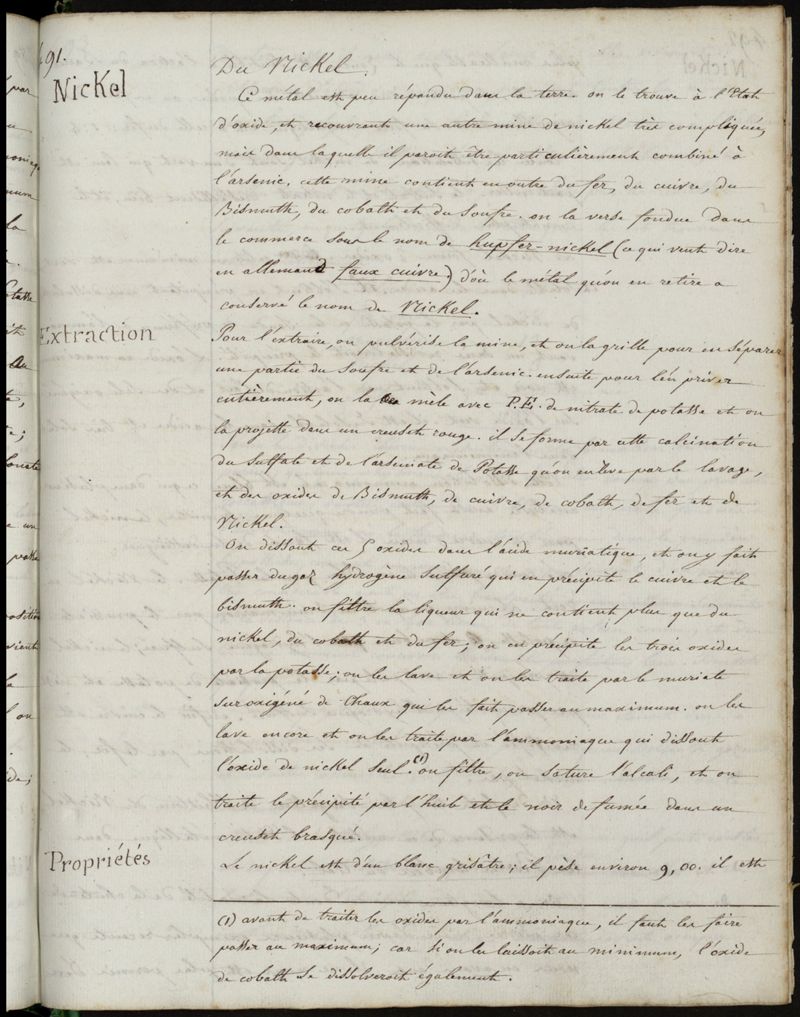 491.
Nickel
Du Nickel.
Ce métal est peu répandu dans la terre. on le trouve à l'Etat
d'oxide, et recouvrant une autre mine de nickel très compliquée,
mais dans laquelle il paroit être particulièrement combiné à
l'arsenic. cette mine contient en outre du fer, du cuivre, du
Bismuth, du cobalt et du soufre. on la verse fondue dans
le commerce sous le nom de kupfer-nickel (ce qui veut dire
en allemand faux cuivre) d'où le métal qu'on en retire a
conservé le nom de Nickel.
Extraction
Pour l'extraire, on pulvérise la mine, et on la grille pour en séparer
une partie du soufre et de l'arsenic. ensuite pour l'en priver
entièrement, on la mêle avec P.E. de nitrate de potasse et on
la projette dans un creuset rouge. il se forme par cette calcination
du sulfate et de l'arseniate de Potasse qu'on enlève par le lavage,
et des oxides de Bismuth, de cuivre, de cobalt, de fer et de
Nickel.
On dissout ces 5 oxides dans l'acide muriatique, et on y fait
passer du gaz hydrogène sulfuré qui en précipite le cuivre et le
bismuth. on filtre la liqueur qui ne contient plus que du
nickel, du cobalt et du fer; on en précipite les trois oxides
par la potasse; on les lave et on les traite par le muriate
suroxigéné de Chaux qui les fait passer au maximum. on les
lave encore et on les traite par l'ammoniaque qui dissout
l'oxide de nickel seul.(1) on filtre, on sature l'alcali, et on
traite le précipité par l'huile et le noir de fumée dans un
creuset brasqué.
Propriétés
Le nickel est d'un blanc grisâtre; il pèse environ 9,00. il est
(1) avant de traiter les oxides par l'ammoniaque, il faut les faire
passer au maximum; car si on les laissoit au minimum, l'oxide
de cobalt se dissolveroit également.